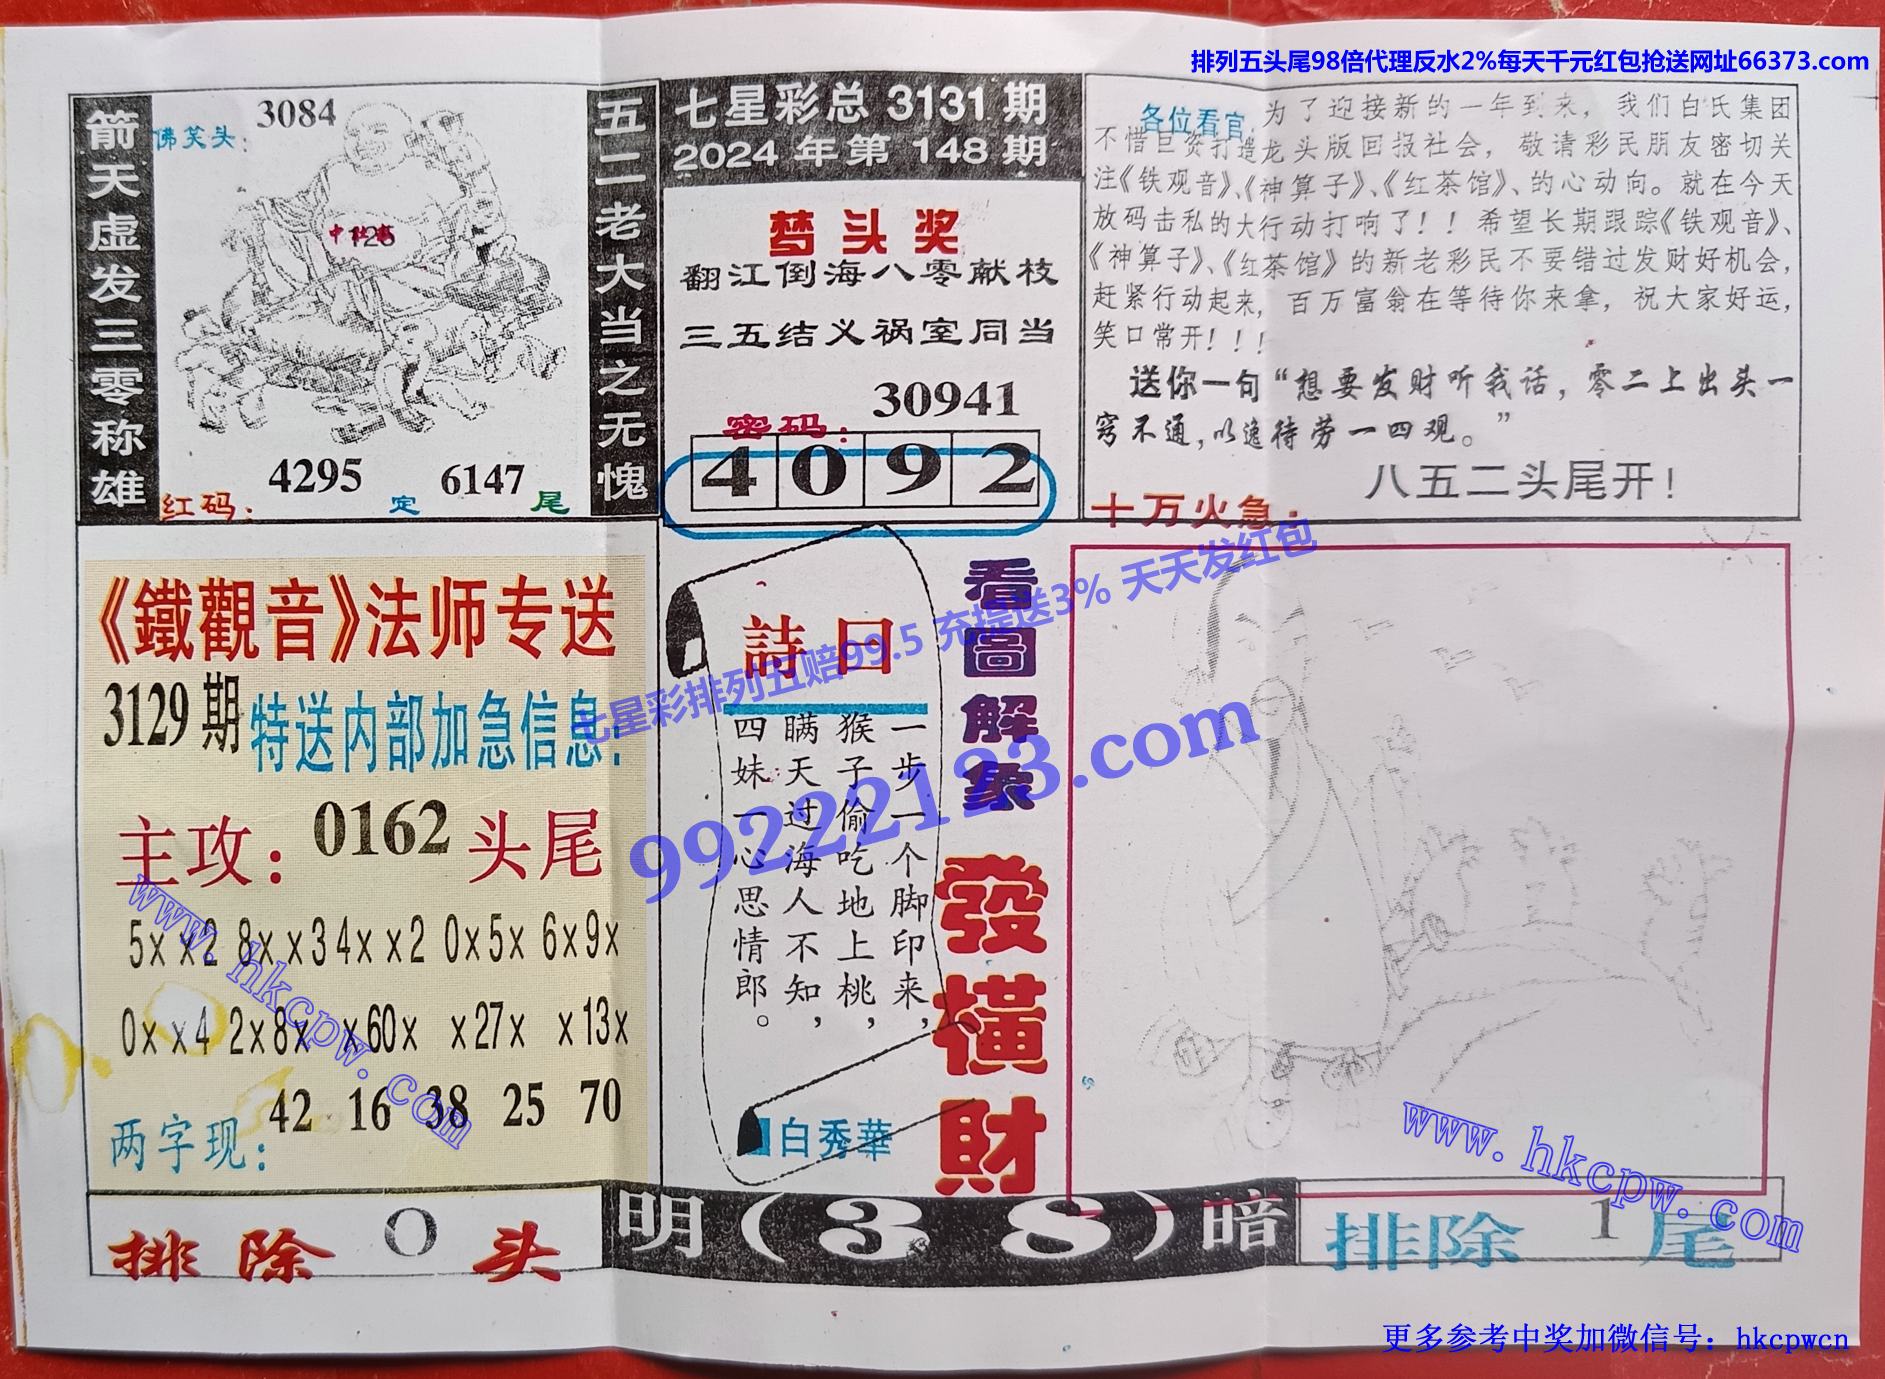 排列五头尾98倍代理反水2%每天千元红包抢送网址66373.com
箭天虚发三零称雄
佛笑头：
3084
125
红码：
4295
定
6147
尾
五二老大当之无愧
七星彩总3131期
2024年第148期
梦头奖
翻江倒海八零献枝
三五结义祸室同当
密码：
30941
4092
各位看官
为了迎接新的一年到来，我们白氏集团
不惜巨资打造龙头版回报社会，敬请彩民朋友密切关
注《铁观音》、《神算子》、《红茶馆》、的心动向。就在今天
放码击私的大行动打响了！！希望长期跟踪《铁观音》、
《神算子》、《红茶馆》的新老彩民不要错过发财好机会，
赶紧行动起来，百万富翁在等待你来拿，祝大家好运，
笑口常开！！！
送你一句“想要发财听我话，零二上出头一
窍不通，以逸待劳一四观。”
八五二头尾开！
十万火急：
《鐵觀音》法师专送
3129期
特送内部加急信息：
主攻：0162头尾
5××2 8××3 4××2 0×5× 6×9×
0××4 2×8× ×60× ×27× ×13×
两字现：
42 16 38 25 70
詩曰
一步一个脚印来，
猴子偷吃地上桃，
瞒天过海人不知，
四妹一心思情郎。
白秀華
看圖解象
發橫財
七星彩排列五赔99.5 充提送3% 天天发红包
99222123.com
www.hkcpw.com
www.hkcpw.com
排除 0 头
明(38)暗
排除 1 尾
更多参考中奖加微信号：hkcpwcn